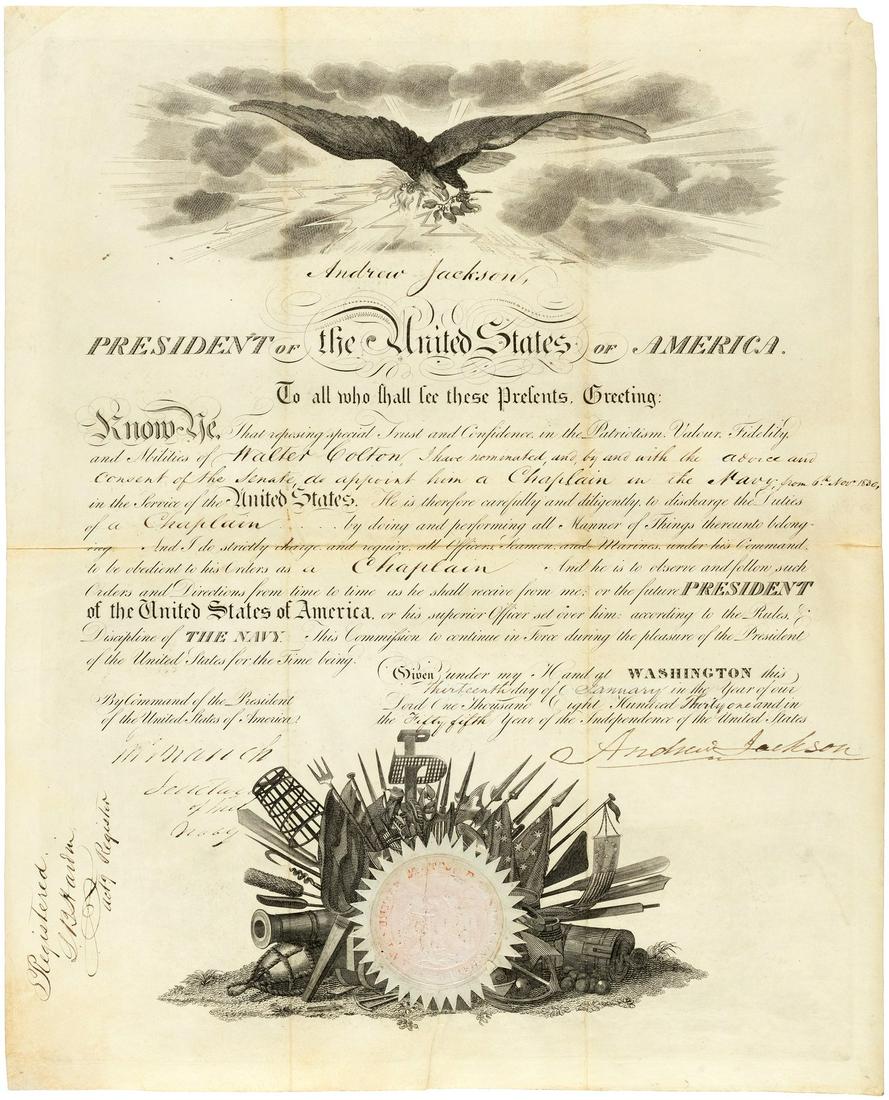 Andrew Jackson,
PRESIDENT OF the United States OF AMERICA.
To all who shall see these Presents, Greeting:
Know Ye, That reposing special Trust and Confidence in the Patriotism, Valour, Fidelity,
and Abilities of Walter Colton, I have nominated, and, by and with the advice and
consent of the Senate, do appoint him a Chaplain in the Navy, from 6th Nov. 1830,
in the Service of the United States. He is therefore carefully and diligently, to discharge the Duties
of a Chaplain by doing and performing all Manner of Things thereunto belong-
ing. And I do strictly charge and require all Officers, Seamen, and Marines, under his Command,
to be obedient to his Orders as a Chaplain And he is to observe and follow such
Orders and Directions from time to time as he shall receive from me; or the future PRESIDENT
of the United States of America, or his superior Officer set over him; according to the Rules, &
Discipline of THE NAVY. This Commission to continue in Force during the pleasure of the President
of the United States for the Time being.
Given under my Hand at WASHINGTON this
thirteenth day of January in the Year of our
Lord One Thousand Eight Hundred Thirty one and in
the Fifty fifth Year of the Independence of the United States
By Command of the President
of the United States of America.
Andrew Jackson
Branch
Secretary
of the
Navy
Registered.
actg Register